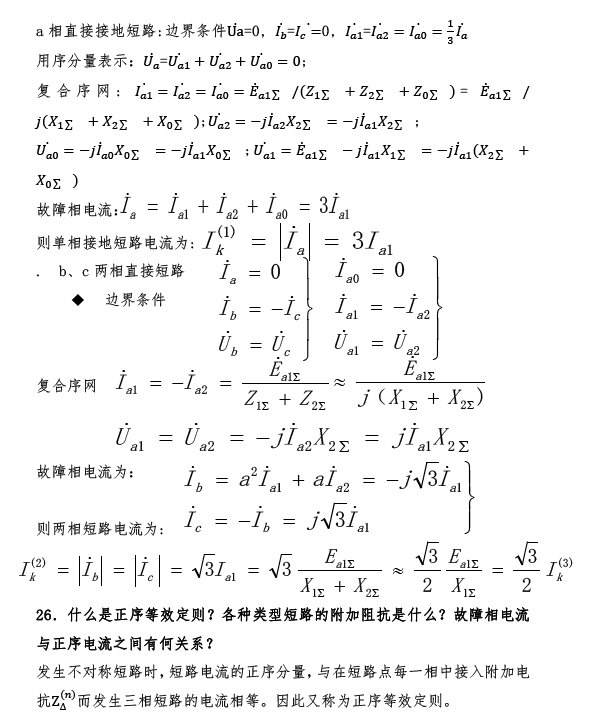 a 相直接接地短路:边界条件U̇a=0, İ_b=İ_c=0, İ_a1=İ_a2 = İ_a0 = 1/3 İ_a
用序分量表示: U̇_a=U̇_a1 + U̇_a2 + U̇_a0 = 0;
复合序网: İ_a1 = İ_a2 = İ_a0 = Ė_a1Σ /(Z_1Σ + Z_2Σ + Z_0Σ) = Ė_a1Σ /
j(X_1Σ + X_2Σ + X_0Σ); U̇_a2 = −jİ_a2X_2Σ = −jİ_a1X_2Σ ;
U̇_a0 = −jİ_a0X_0Σ = −jİ_a1X_0Σ ; U̇_a1 = Ė_a1Σ − jİ_a1X_1Σ = −jİ_a1(X_2Σ +
X_0Σ )
故障相电流: İ_a = İ_a1 + İ_a2 + İ_a0 = 3İ_a1
则单相接地短路电流为: I_k^(1) = |İ_a| = 3I_a1
. b、c 两相直接短路 İ_a = 0 } İ_a0 = 0 }
◆ 边界条件 İ_b = −İ_c İ_a1 = −İ_a2
U̇_b = U̇_c U̇_a1 = U̇_a2
复合序网 İ_a1 = −İ_a2 = Ė_a1Σ / (Z_1Σ + Z_2Σ) ≈ Ė_a1Σ / j（X_1Σ + X_2Σ）
U̇_a1 = U̇_a2 = −jİ_a2X_2Σ = jİ_a1X_2Σ
故障相电流为: İ_b = a²İ_a1 + aİ_a2 = −j√3İ_a1 }
则两相短路电流为: İ_c = −İ_b = j√3İ_a1
I_k^(2) = |İ_b| = |İ_c| = √3I_a1 = √3 E_a1Σ / (X_1Σ + X_2Σ) ≈ √3/2 E_a1Σ/X_1Σ = √3/2 I_k^(3)
26．什么是正序等效定则？各种类型短路的附加阻抗是什么？故障相电流
与正序电流之间有何关系？
发生不对称短路时，短路电流的正序分量，与在短路点每一相中接入附加电
抗Z_Δ^(n)而发生三相短路的电流相等。因此又称为正序等效定则。